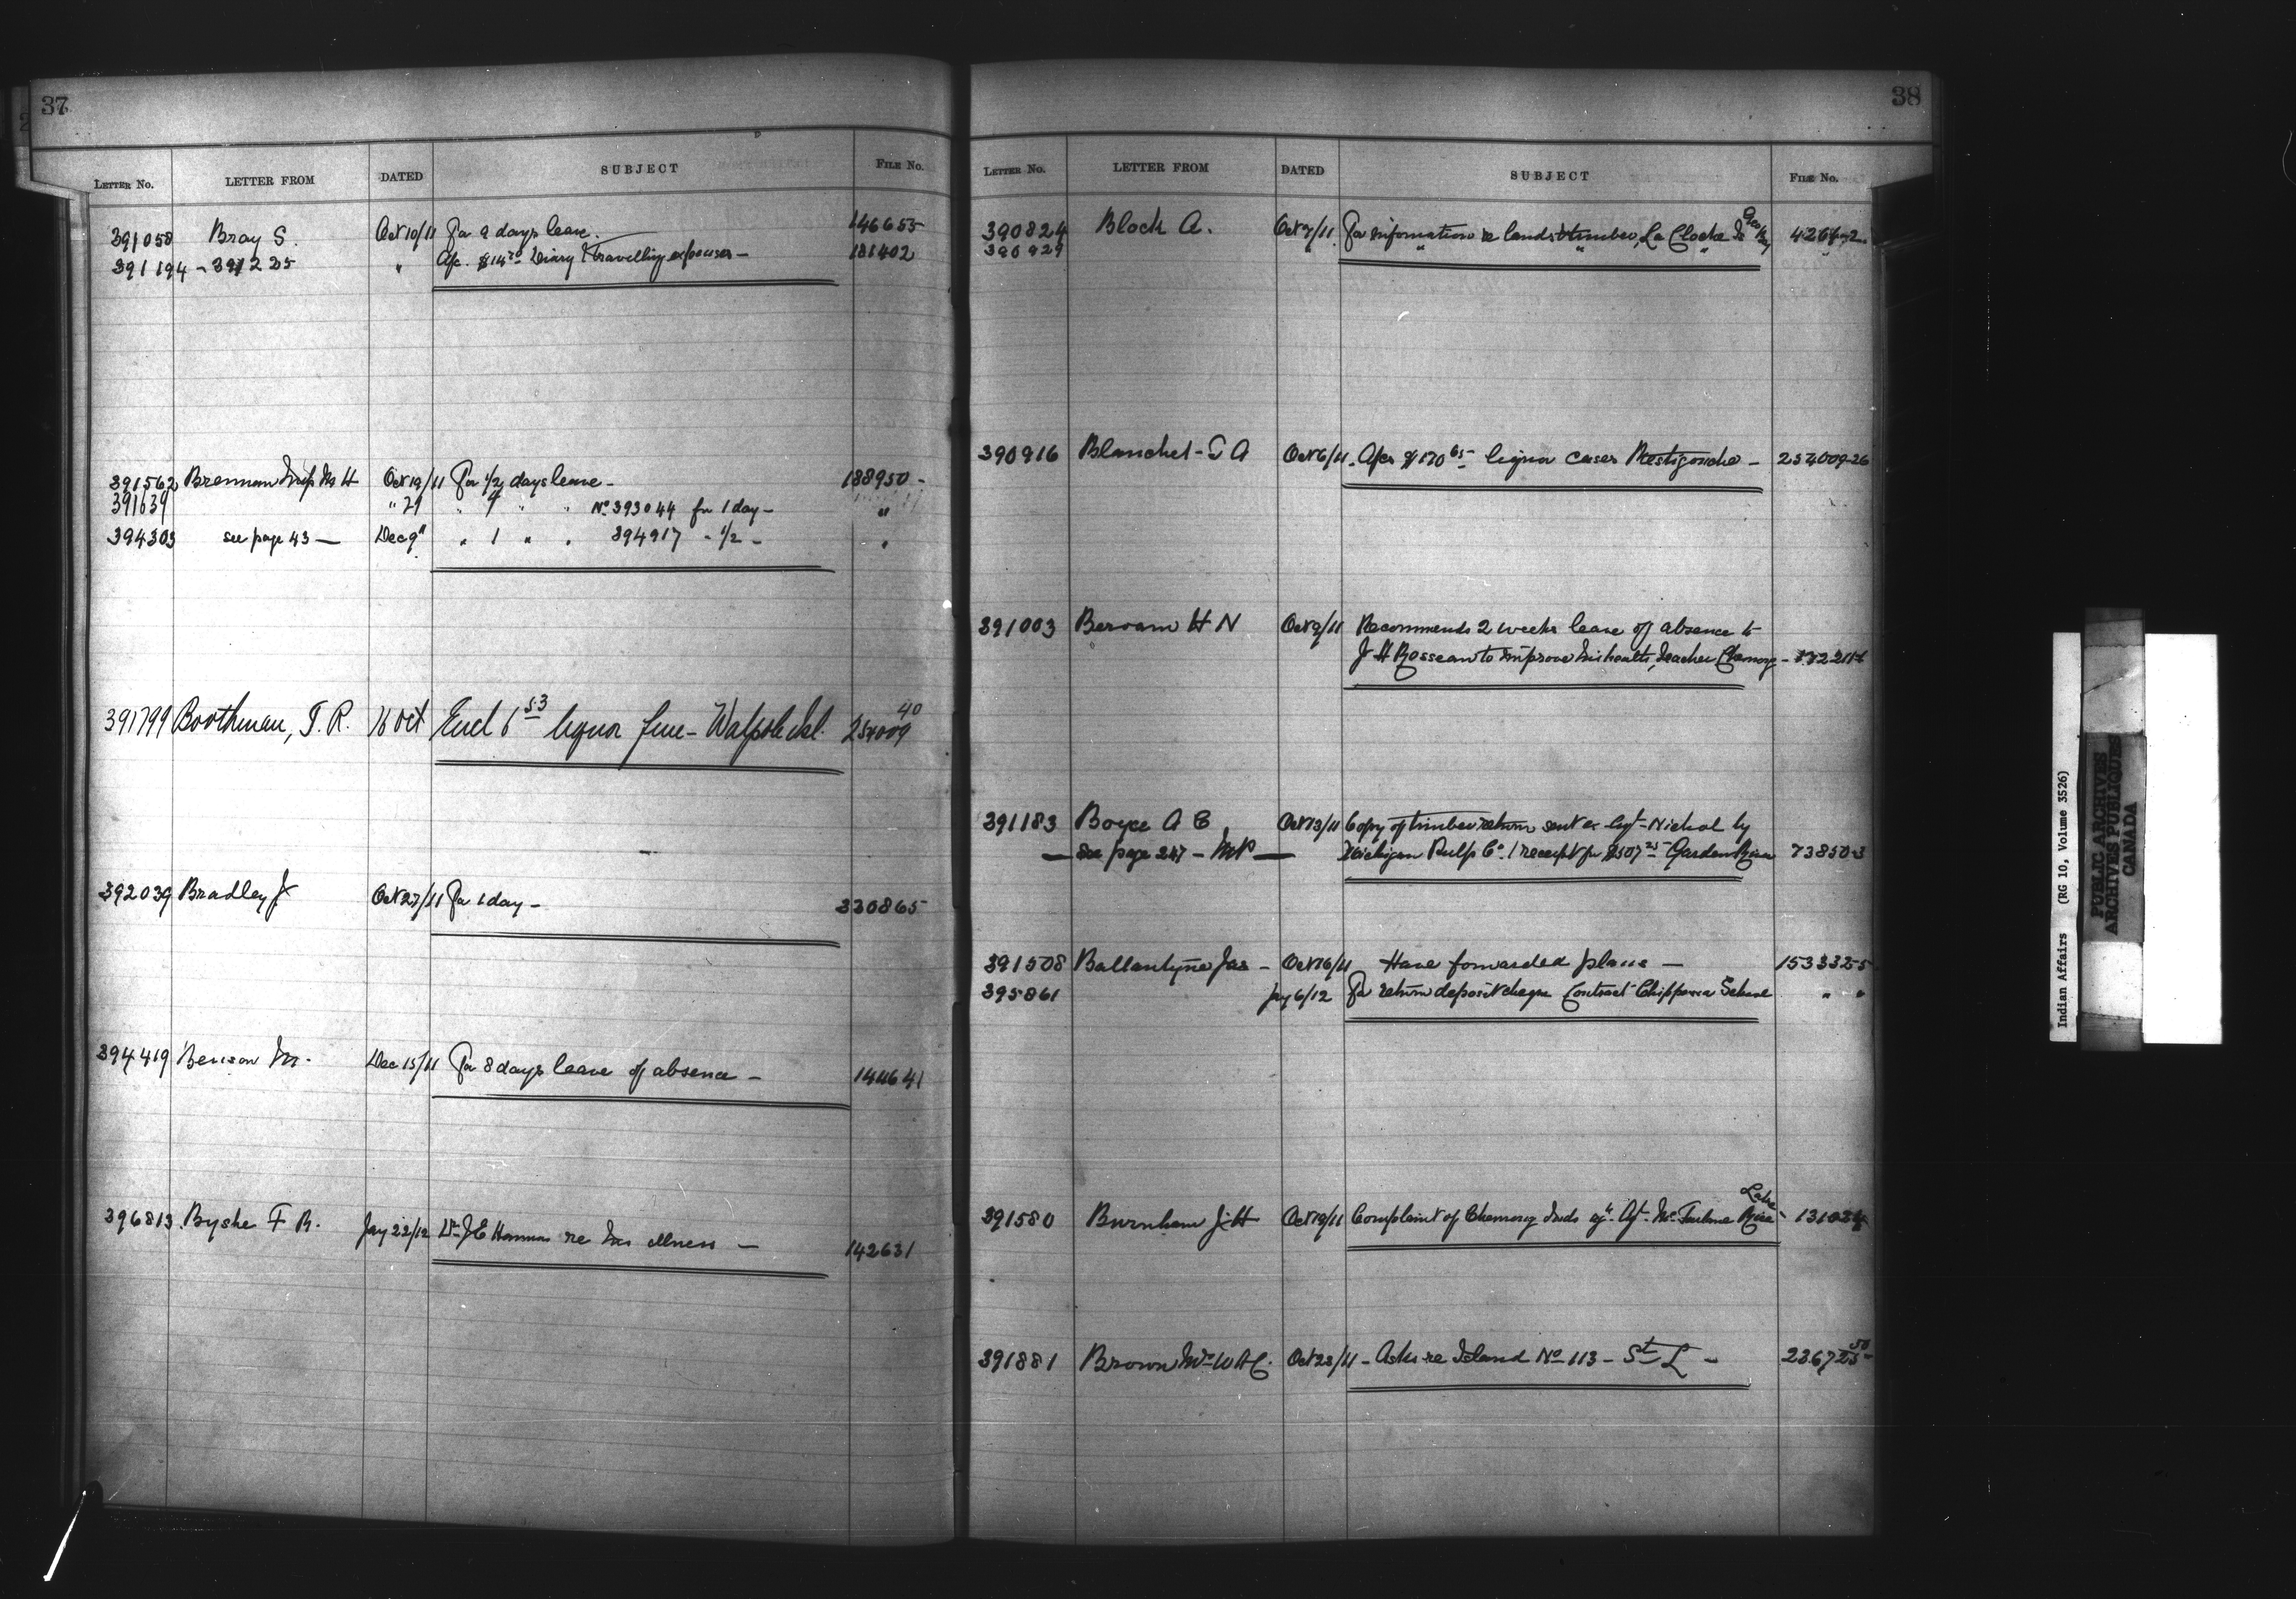 37
LETTER NO. LETTER FROM DATED SUBJECT FILE NO.
391058 Bray S. Oct 10/11 For 9 days leave. 146655
391194 - 391225 " Diary & travelling expenses - 181402
391562 Brennan Oct 19/11 For 1/2 days leave - 188950 -
391639 " 29 " " " No 393044 for 1 day - "
394303 see page 43 — Dec 9" " 1 " " 394917 " 1/2 - "
391799 Boothman, T. R. 16 Oct Encl 6 53 liquor fine - Walpole Isl. 254009 40
392039 Bradley J Oct 27/11 For 1 day - 330865
394419 Benson M. Dec 15/11 For 8 days leave of absence - 144641
396813 Byshe F R. Jay 22/12 Dr J E Hannas re his illness - 142631
38
LETTER NO. LETTER FROM DATED SUBJECT FILE NO.
390824 Block A. Oct 7/11 For information re lands & timber, La Cloche Is
390929 " " " "
390916 Blanchet - A Oct 6/11 - $170 65 liquor cases Restigouche - 254009-26
391003 H N Oct 9/11 Recommends 2 weeks leave of absence to
J H Rosseau to improve his health, teacher Chemong -
391183 Boyce A E Oct 13/11 Copy of timber return sent ex Agt - Nichol by
— See page 247 — Michigan Pulp Co. / receipt for $507 25 - Garden River 73850-3
391508 Ballantyne Jas - Oct 16/11 Have forwarded plans - 153332-5
395861 Jay 6/12 For return deposit cheque Contract Chippewa School " "
391580 Burnham J H Oct 19/11 Complaint of Chemong Inds agt. Agt. McFarlane Rice Lake -
391881 Brown Mrs W A C. Oct 23/11 - Asks re Island No 113 - St L -
Indian Affairs (RG 10, Volume 3526)
PUBLIC ARCHIVES
ARCHIVES PUBLIQUES
CANADA